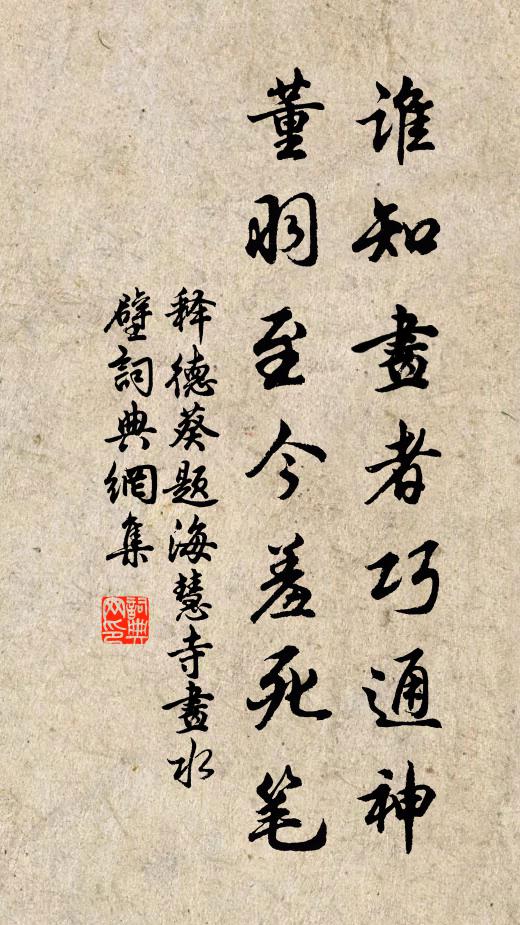 誰知畫者巧通神
董羽至今羞死笔
释德葵題海慧寺畫水
壁詞典網集
詞典
网印